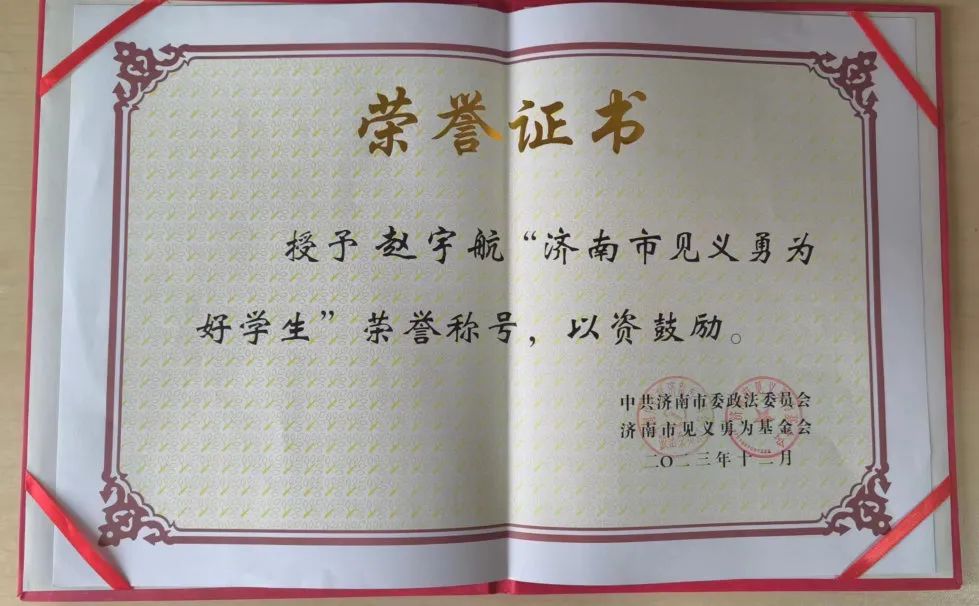 荣誉证书
授予 赵宇航“济南市见义勇为
好学生”荣誉称号，以资鼓励。
中共济南市委政法委员会
济南市见义勇为基金会
二〇二三年十二月